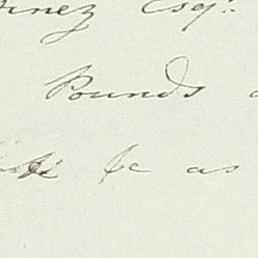 inez Esqr.
Pounds
&c as